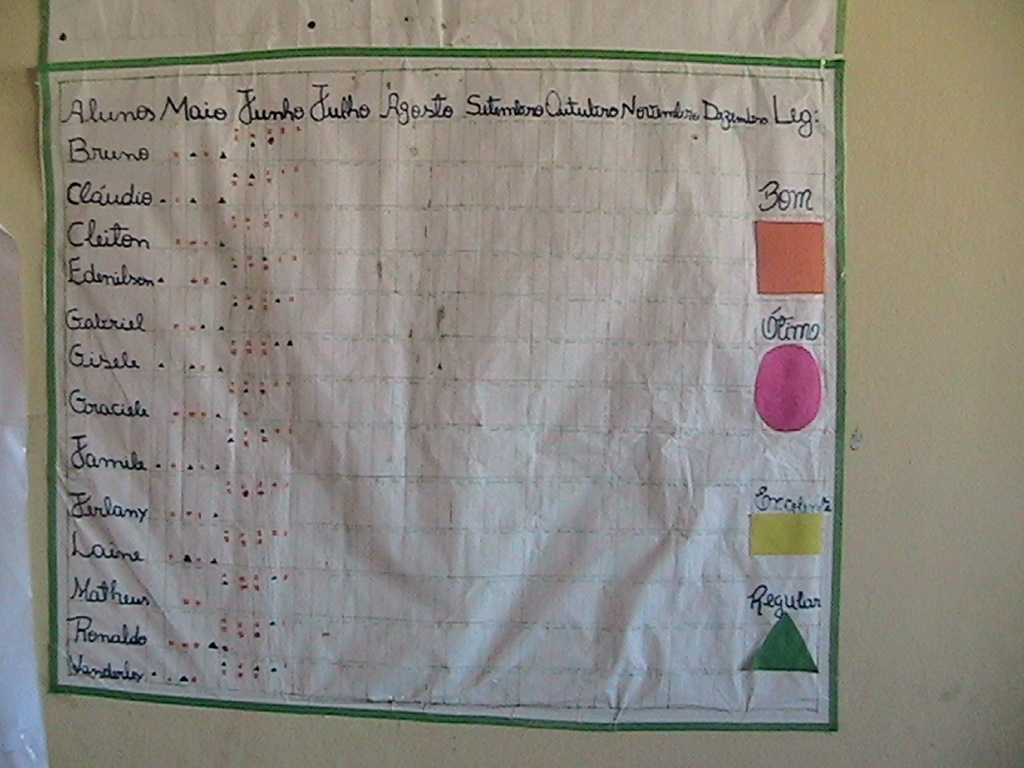 Alunos Maio Junho Julho Agosto Setembro Outubro Novembro Dezembro Leg:
Bruno
Cláudio
Bom
Cleiton
Edenilson
Gabriel
Ótimo
Gisele
Graciele
Jamile
Excelente
Jerlany
Laine
Matheus
Regular
Ronaldo
Wanderley